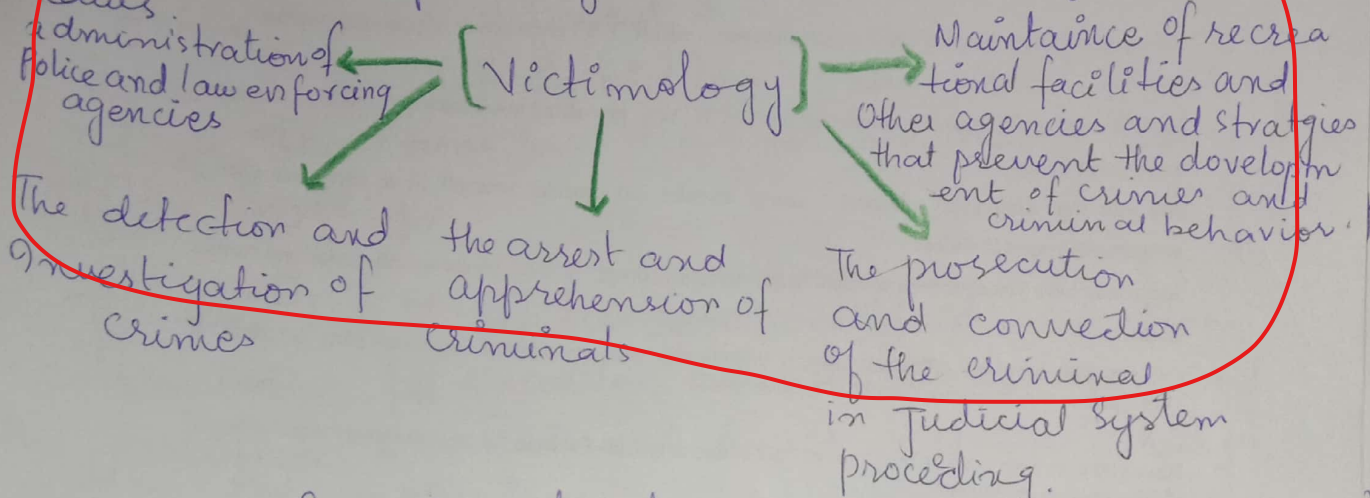 administration of
Police and law enforcing
agencies
[Victimology]
Maintaince of recrea
tional facilities and
Other agencies and stratgies
that prevent the dovelopm
ent of crimes and
criminal behavior.
The detection and
Investigation of
crimes
the arrest and
apprehension of
criminals
The prosecution
and convection
of the criminal
in Judicial System
proceding.